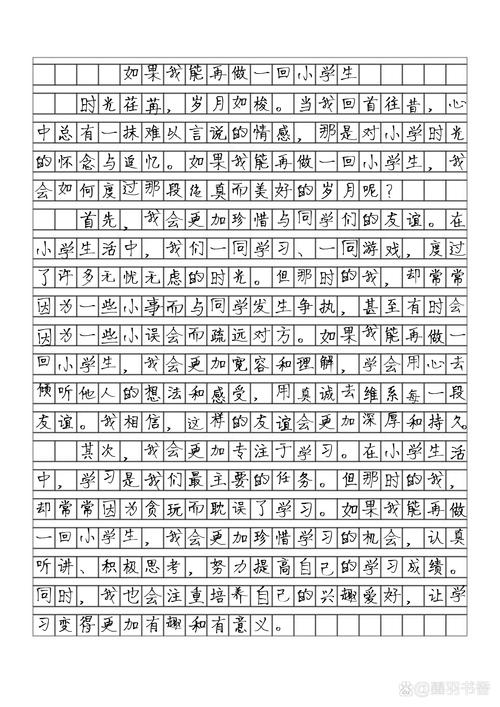 如果我能再做一回小学生
时光荏苒，岁月如梭。当我回首往昔，心
中总有一抹难以言说的情感，那是对小学时光
的怀念与追忆。如果我能再做一回小学生，我
会如何度过那段纯真而美好的岁月呢？
首先，我会更加珍惜与同学们的友谊。在
小学生活中，我们一同学习、一同游戏，度过
了许多无忧无虑的时光。但那时的我，却常常
因为一些小事而与同学发生争执，甚至有时会
因为一些小误会而疏远对方。如果我能再做一
回小学生，我会更加宽容和理解，学会用心去
倾听他人的想法和感受，用真诚去维系每一段
友谊。我相信，这样的友谊会更加深厚和持久。
其次，我会更加专注于学习。在小学生活
中，学习是我们最主要的任务。但那时的我，
却常常因为贪玩而耽误了学习。如果我能再做
一回小学生，我会更加珍惜学习的机会，认真
听讲、积极思考，努力提高自己的学习成绩。
同时，我也会注重培养自己的兴趣爱好，让学
习变得更加有趣和有意义。
@晶羽书香